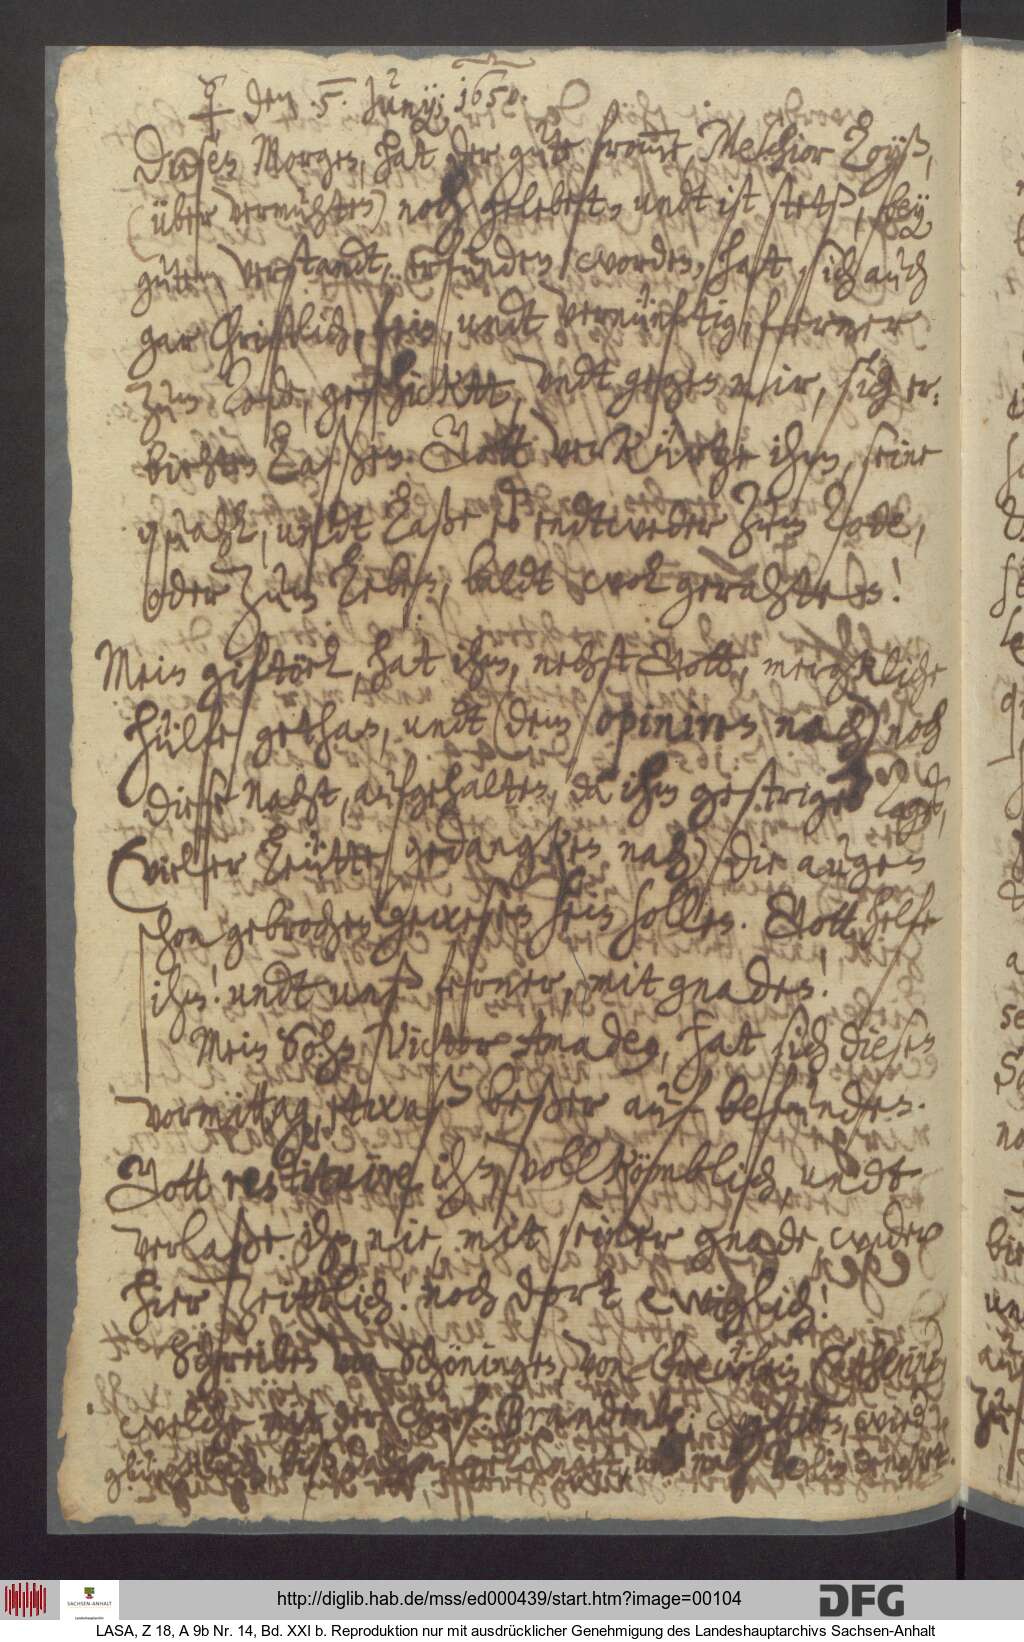 ☿ den 5. Junÿ; 1650.
Diesen Morgen, hat der gute fromme, Melchior Loyß,
(über vermuhten) noch gelebett, undt ist stets, bey
gutem verstandt, erfunden worden, hatt sich auch
gar Christlich, fein, undt vernünftig, ferner
zum Tode, geschicktt, undt gegen mir, sich er-
biehten laßen. Gott verkürtze ihm, seine
quahl, undt laße es endtweder zum Tode,
oder zum leben, baldt wol gerahten!
Mein giftöhl, hat ihm, nechst Gott, mergkliche
hülfe gethan, undt (dem opiniren nach) noch
diese nacht, aufgehalten, da ihm gestriges Tages,
(vieler leütte gedangken nach) die augen
schon gebrochen gewesen sein sollen. Gott helfe
ihm! undt unß ferner, mit gnaden!
Mein Sohn Victor Amadeus, hat sich diesen
vormittag, etwaß beßer auf befunden.
Gott restituire ihn, vollkömblich, undt
verlaße ihn, nie, mit seiner gnade, weder
hier zeittlich! noch dort ewiglich!
Schreiben von Schöningen, von Frewlein
welche mit der Churf. Brandenb: wittiben,
http://diglib.hab.de/mss/ed000439/start.htm?image=00104
DFG
SACHSEN-ANHALT
Landeshauptarchiv
LASA, Z 18, A 9b Nr. 14, Bd. XXI b. Reproduktion nur mit ausdrücklicher Genehmigung des Landeshauptarchivs Sachsen-Anhalt